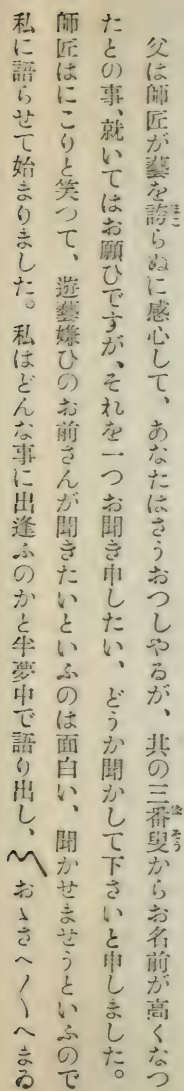 父は師匠が藝を誇らぬに感心して、あなたはさうおつしやるが、其の三番叟からお名前が高くなつ
たとの事、就いてはお願ひですが、それを一つお聞き申したい、どうか聞かして下さいと申しました。
師匠はにこりと笑つて、遊藝嫌ひのお前さんが聞きたいといふのは面白い、聞かせませうといふので
私に語らせて始まりました。私はどんな事に出逢ふのかと半夢中で語り出し、〽おゝさへ〳〵へまゐ